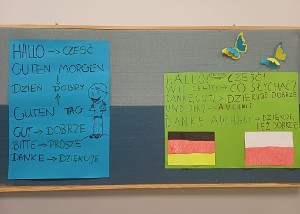 HALLO → CZEŚĆ
GUTEN MORGEN
↓
DZIEŃ DOBRY
↑
GUTEN TAG
GUT → DOBRZE
BITTE → PROSZĘ
DANKE → DZIĘKUJĘ
HALLO! → CZEŚĆ!
WIE GEHTS? → CO SŁYCHAĆ?
DANKE, GUT, → DZIĘKUJĘ DOBRZE
UND DIR? → A U CIEBIE?
DANKE AUCH GUT → DZIĘKUJĘ,
TEŻ DOBRZE